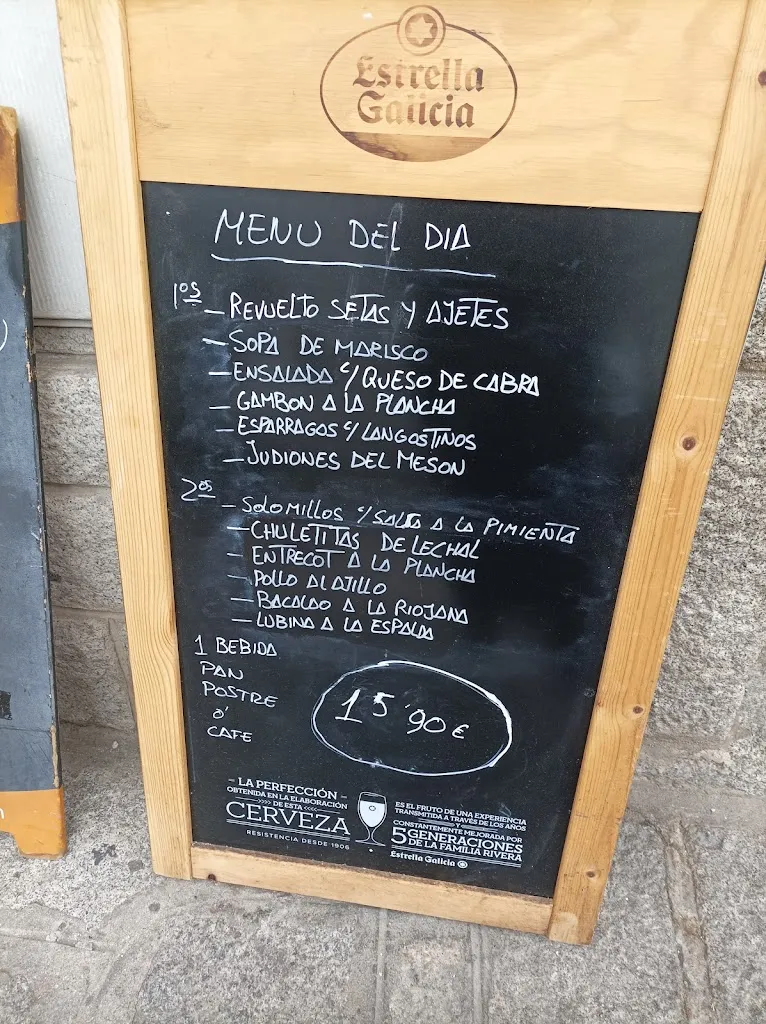 Estrella
Galicia
MENU DEL DIA
1os
- REVUELTO SETAS Y AJETES
- SOPA DE MARISCO
- ENSALADA C/ QUESO DE CABRA
- GAMBON A LA PLANCHA
- ESPARRAGOS C/ LANGOSTINOS
- JUDIONES DEL MESON
2os
- SOLOMILLOS C/ SALSA A LA PIMIENTA
- CHULETITAS DE LECHAL
- ENTRECOT A LA PLANCHA
- POLLO AL AJILLO
- BACALAO A LA RIOJANA
- LUBINA A LA ESPALDA
1 BEBIDA
PAN
POSTRE
ó
CAFE
15'90€
- LA PERFECCIÓN -
OBTENIDA EN LA ELABORACIÓN
>>>> DE ESTA <<<<
CERVEZA
RESISTENCIA DESDE 1906
ES EL FRUTO DE UNA EXPERIENCIA
TRANSMITIDA A TRAVÉS DE LOS AÑOS
Y
CONSTANTEMENTE MEJORADA POR
5 GENERACIONES
DE LA FAMILIA RIVERA
Estrella Galicia